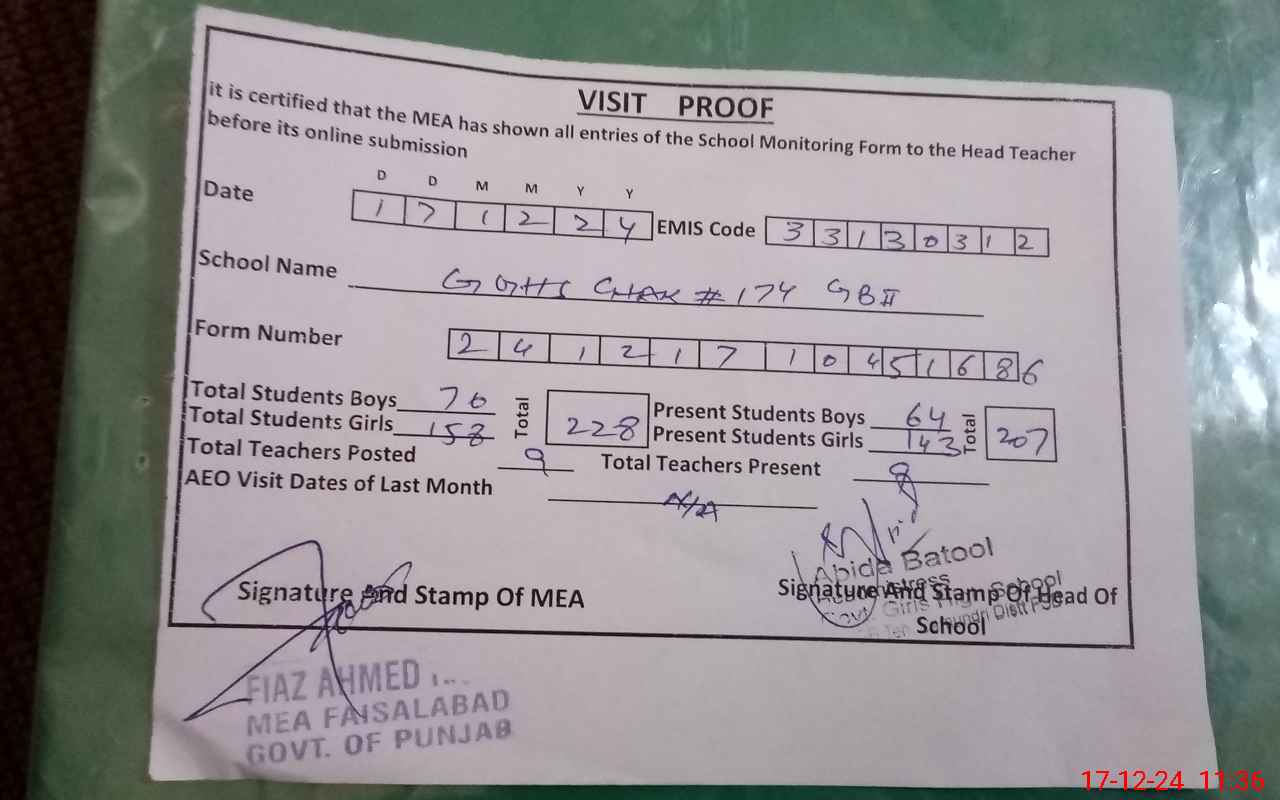 VISIT PROOF
it is certified that the MEA has shown all entries of the School Monitoring Form to the Head Teacher
before its online submission
D D M M Y Y
Date 1 7 1 2 2 4 EMIS Code 3 3 1 3 0 3 1 2
School Name GGHS CHAK # 174 GB II
Form Number 2 4 1 2 1 7 1 0 4 5 1 6 8 6
Total Students Boys 70 Total 228 Present Students Boys 64 Total 207
Total Students Girls 158 Present Students Girls 143
Total Teachers Posted 9 Total Teachers Present 8
AEO Visit Dates of Last Month N/A
Abida Batool
Signature And Stamp Of MEA Signature And Stamp Of Head Of
School
Govt. Girls High School
Distt
FIAZ AHMED
MEA FAISALABAD
GOVT. OF PUNJAB
17-12-24 11:36